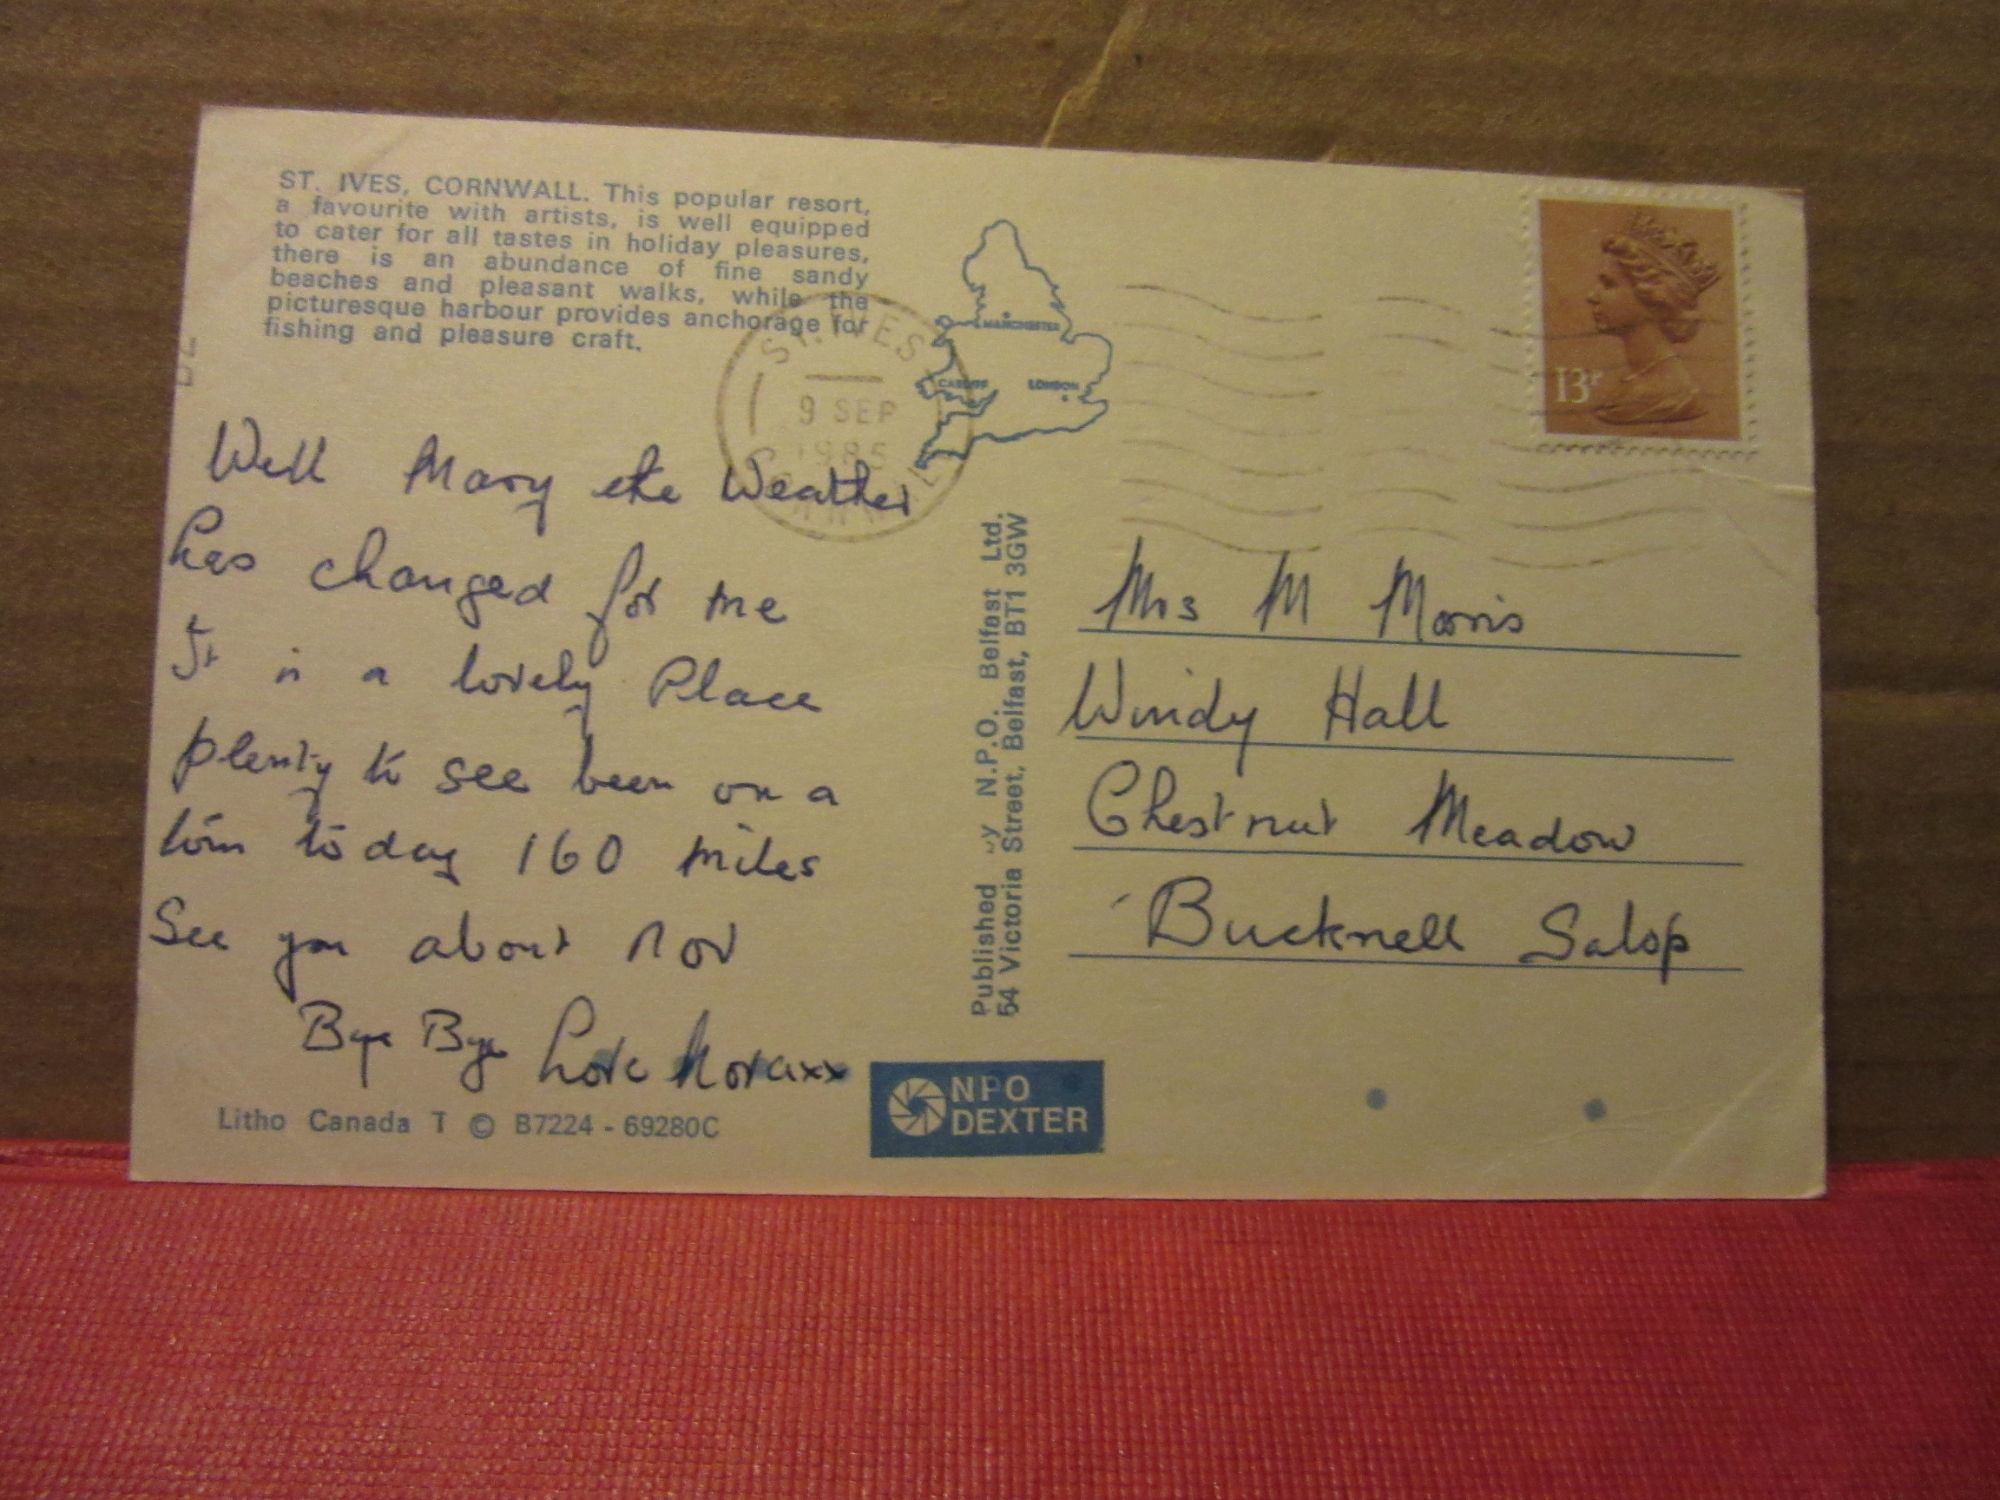 ST. IVES, CORNWALL. This popular resort,
a favourite with artists, is well equipped
to cater for all tastes in holiday pleasures,
there is an abundance of fine sandy
beaches and pleasant walks, while the
picturesque harbour provides anchorage for
fishing and pleasure craft.
MANCHESTER
CARDIFF LONDON
ST. IVES
9 SEP
1985
CORNWALL
13P
Well Mary the Weather
has changed for me
It is a lovely Place
plenty to see been on a
today 160 miles
See you about Nov
Bye Bye Love Noraxx
Litho Canada T © B7224 - 69280C
Published by N.P.O. Belfast Ltd.
54 Victoria Street, Belfast, BT1 3GW
NPO
DEXTER
Mrs M Morris
Windy Hall
Chestnut Meadow
Bucknell Salop